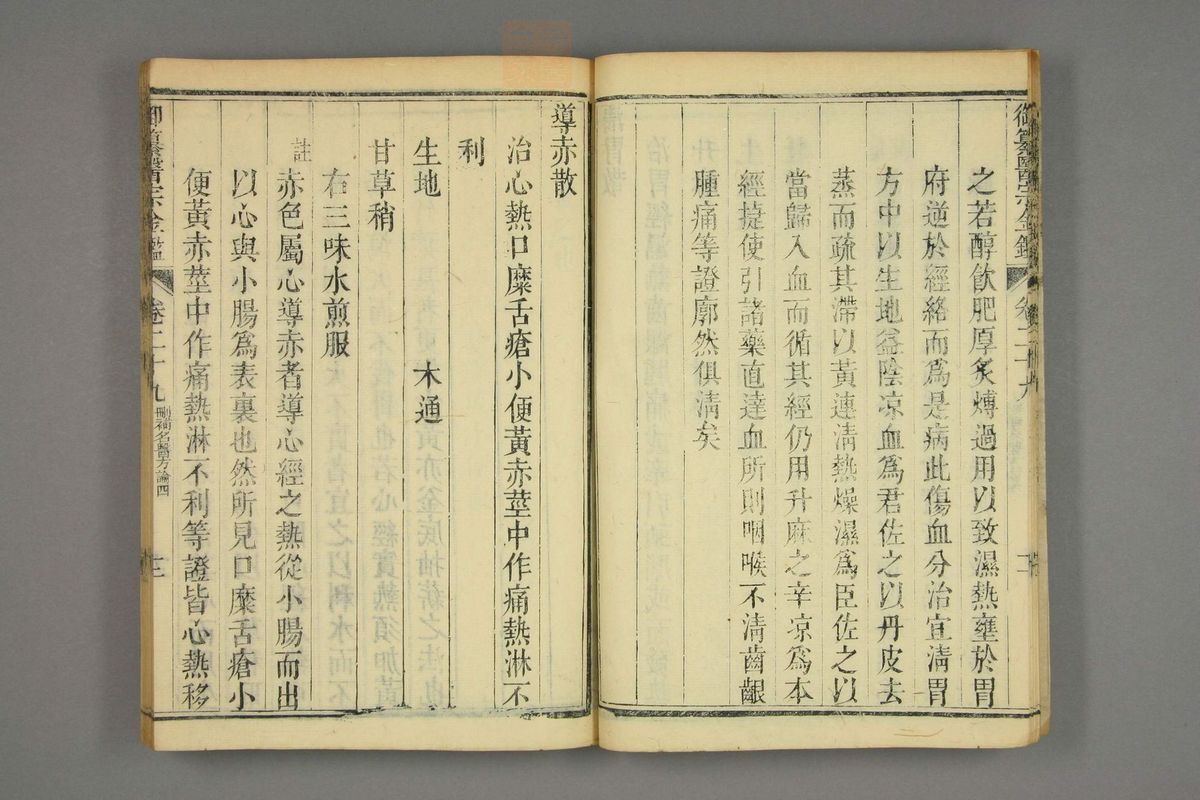 御纂醫宗金鑑 卷二十九 二
之若醇飲肥厚炙煿過用以致濕熱壅於胃
府逆於經絡而爲是病此傷血分治宜淸胃
方中以生地益陰凉血爲君佐之以丹皮去
蒸而疏其滯以黃連淸熱燥濕爲臣佐之以
當歸入血而循其經仍用升麻之辛凉爲本
經捷使引諸藥直達血所則咽喉不淸齒齦
腫痛等證廓然俱淸矣
導赤散
治心熱口糜舌瘡小便黃赤莖中作痛熱淋不
利
生地 木通
甘草稍
右三味水煎服
註
赤色屬心導赤者導心經之熱從小腸而出
以心與小腸爲表裏也然所見口糜舌瘡小
便黃赤莖中作痛熱淋不利等證皆心熱移
御纂醫宗金鑑 卷二十九 刪補名醫方論四 三